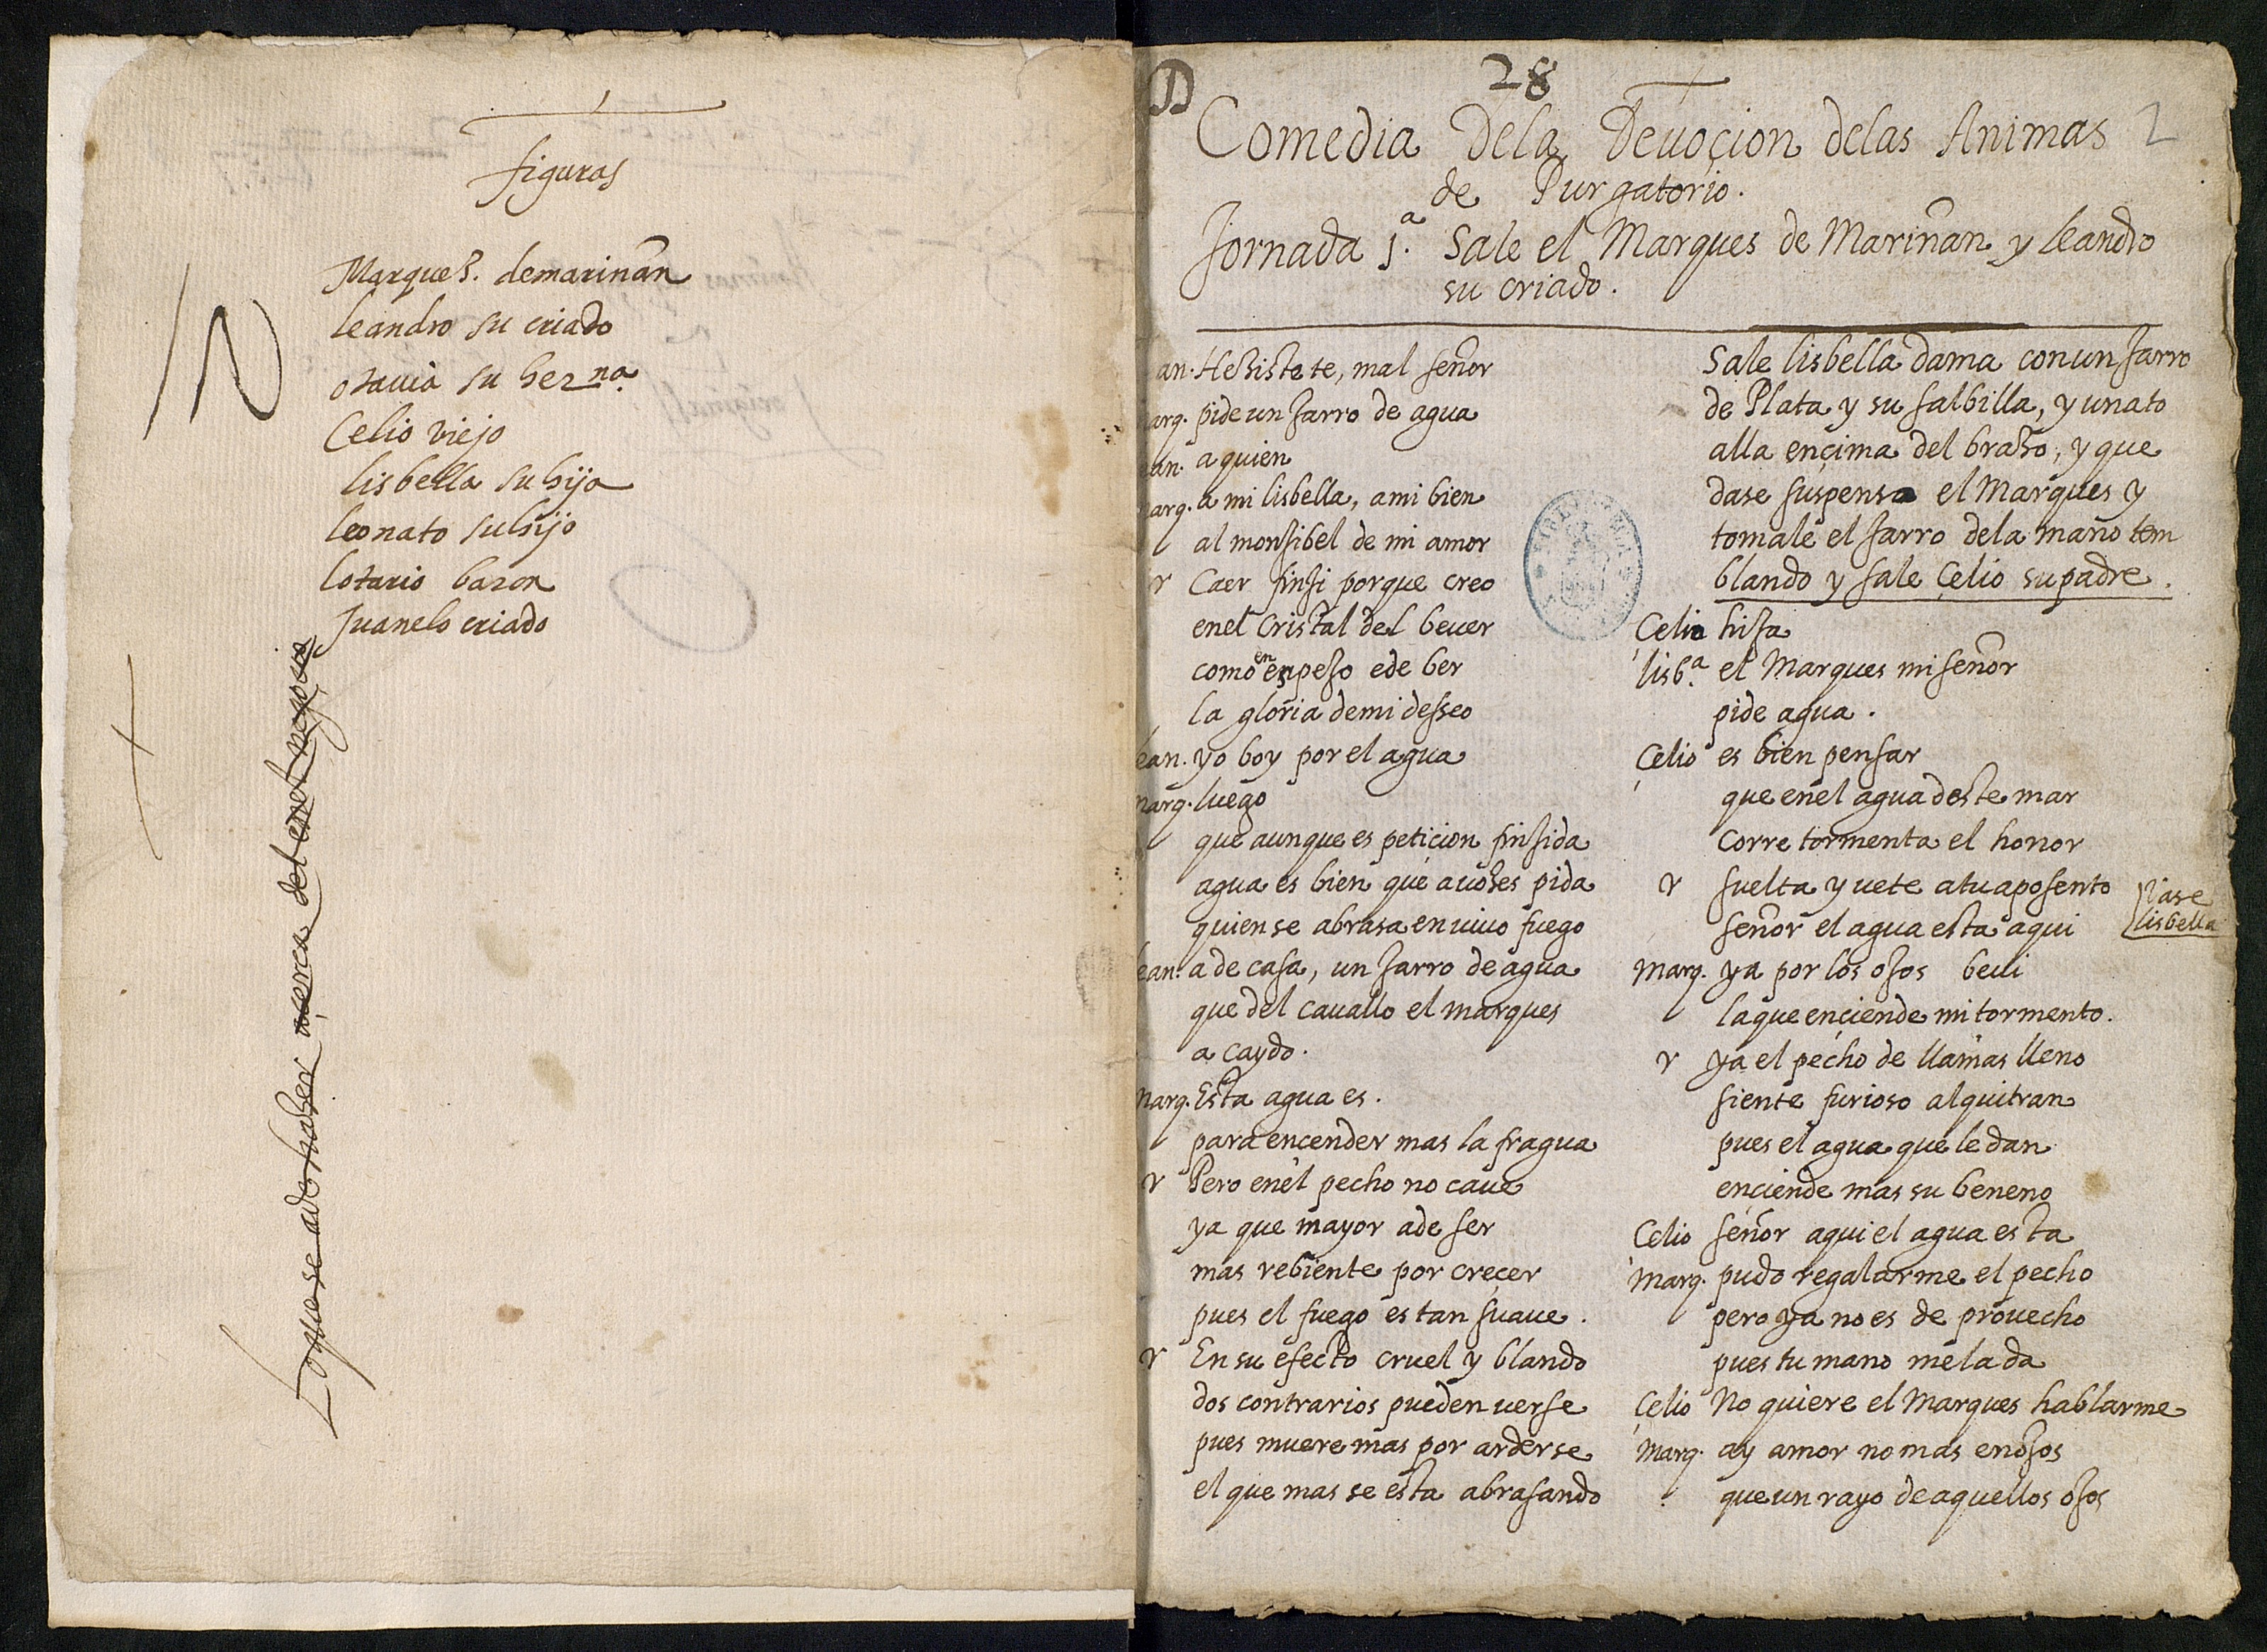 figuras
Marques. demarinãn
leandro su criado
otauia su herna.
Celio viejo
lisbella su hija
leonato su hijo
lotario baron
Juanelo criado
Loque se ade haser açerca del enel negoçio
28
Comedia dela Deuoçion delas Animas 2
de Purgatorio.
Jornada 1.a Sale el Marques de Mariñan y leandro
su criado.
an. Hesistete, mal señor
arq. pide un Jarro de agua
ean. a quien
arq. a mi lisbella, ami bien
al monJibel de mi amor
r Caer finJi porque creo
enel cristal del beuer
como en espeJo ede ber
la gloria demi desseo
ean. yo boy por el agua
marq. luego
que aunque es petiçion finJida
agua es bien que a uoses pida
quien se abrasa en uiuo fuego
ean. a de casa, un Jarro de agua
que del cauallo el marques
a caydo.
marq. Esta agua es.
para encender mas la fragua
r Pero enel pecho no caue
ya que mayor ade ser
mas rebiente por creçer
pues el fuego es tan suaue.
r En su efecto cruel y blando
dos contrarios pueden uerse
pues muere mas por arderse
el que mas se esta abrasando
Sale lisbella dama con un Jarro
de Plata y su salbilla, y una to
alla ençima del braso, y que
dase suspenso el Marques y
tomale el Jarro dela mano tem
blando y sale Çelio su padre.
Çelio hiJa
lisb.a el Marques mi señor
pide agua.
Çelio es bien pensar
que enel agua deste mar
corre tormenta el honor
r suelta y uete a tu aposento
Vase
lisbella
señor el agua esta aqui
Marq. ya por los oJos beui
la que ençiende mi tormento.
r ya el pecho de llamas lleno
siente furioso alquitran
pues el agua que le dan
ençiende mas su beneno
Çelio señor aqui el agua esta
Marq. pudo regalarme el pecho
pero ya no es de prouecho
pues tu mano me la da
Çelio No quiere el Marques hablarme
Marq. ay amor no mas enoJos
que un rayo de aquellos oJos